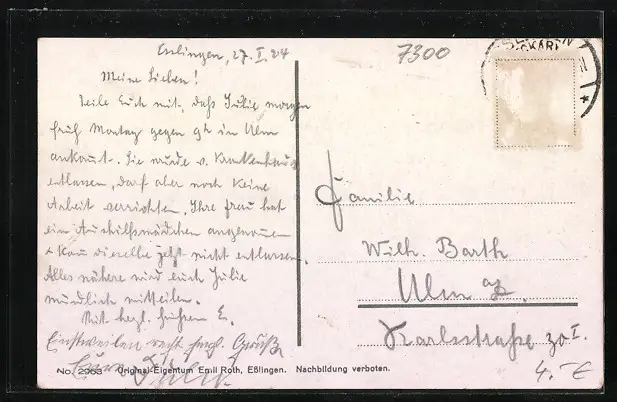 Esslingen, 27. I. 24
7300
Meine Lieben!
Teile Euch mit, daß Julie morgen
früh Montag gegen 9h in Ulm
ankommt. Sie wurde v. Krankenhaus
entlassen, darf aber noch keine
Arbeit verrichten. Ihre Frau hat
ein Aushilfsmädchen angenommen
& kann dieselbe jetzt nicht entlassen.
Alles nähere wird euch Julie
mündlich mitteilen.
Mit herzl. E.
Einstweilen recht herzl. Grüße
Eure Julie.
Familie
Wilh. Barth
Ulm a/D.
Karlsstraße 30 I.
4.-E
No. 2963 Original-Eigentum Emil Roth, Eßlingen. Nachbildung verboten.